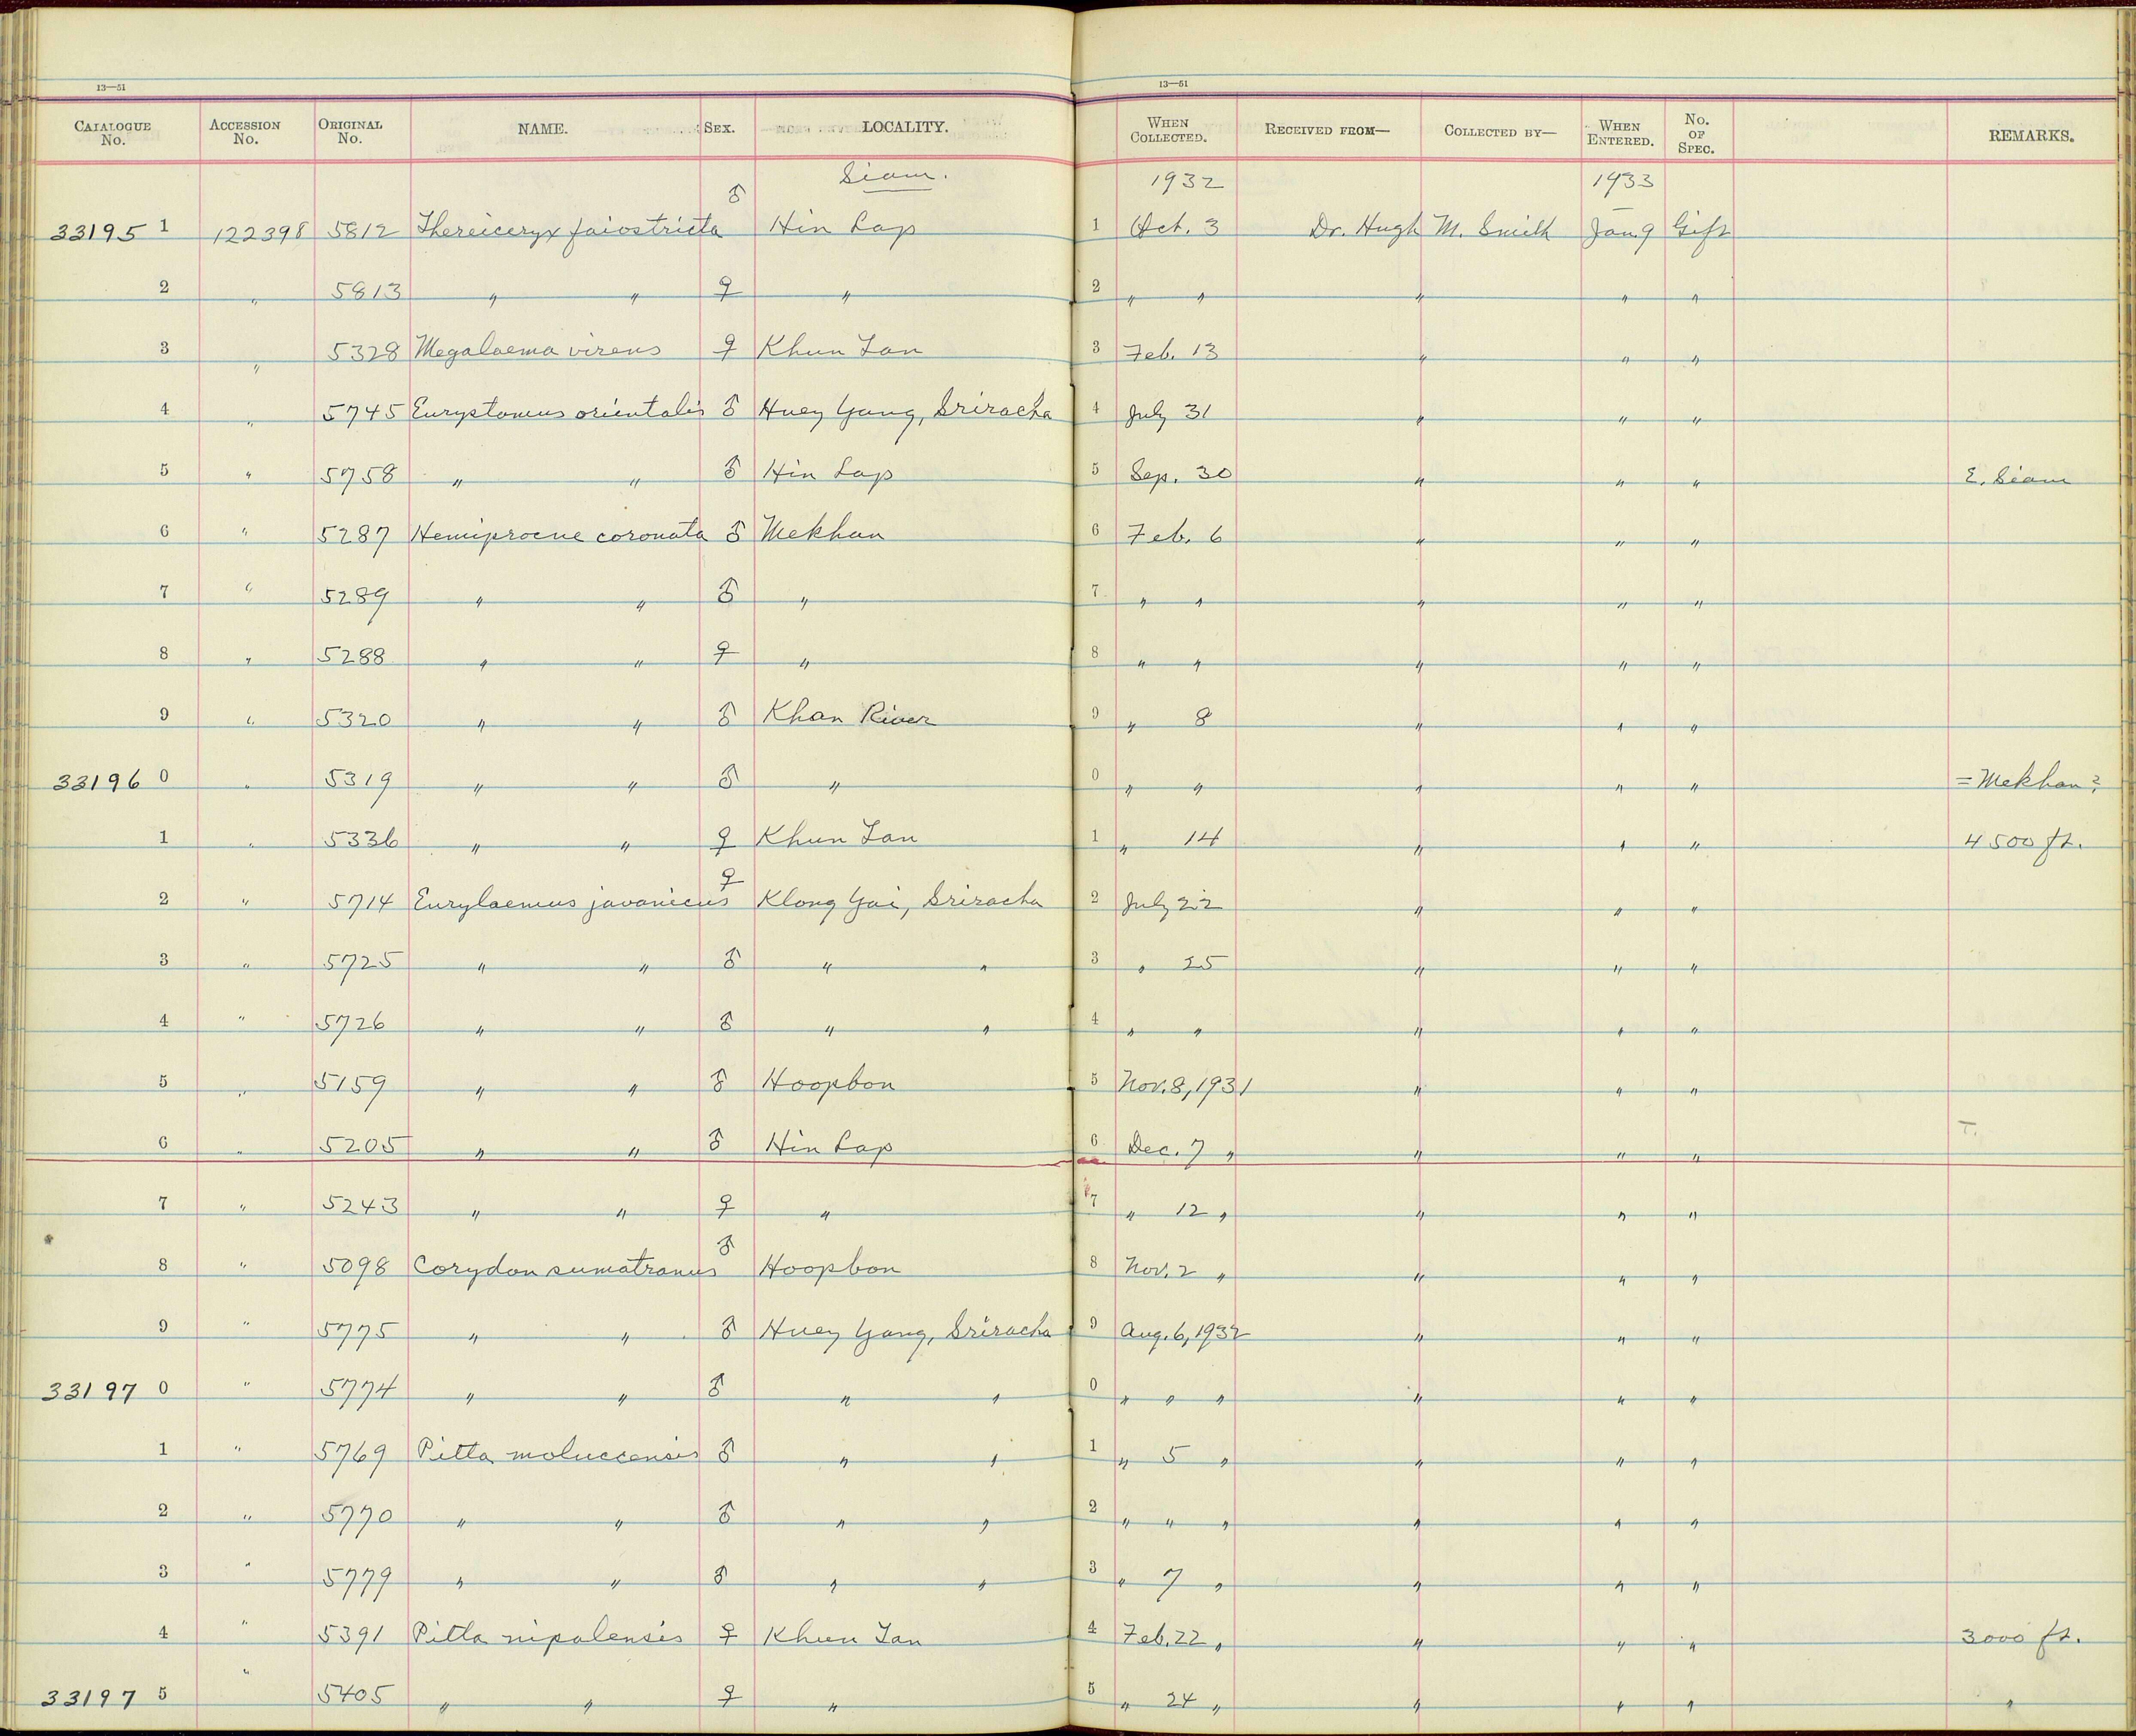 13—51 13—51
CATALOGUE No. ACCESSION No. ORIGINAL No. NAME. SEX. LOCALITY. WHEN COLLECTED. RECEIVED FROM— COLLECTED BY— WHEN ENTERED. No. OF SPEC. REMARKS.
Siam. 1932 1933
33195 1 122398 5812 Thereiceryx faiostricta ♂ Hin Lap 1 Oct. 3 Dr. Hugh M. Smith Jan. 9 Gift
2 " 5813 " " ♀ " 2 " " " " "
3 " 5328 Megalaema virens ♀ Khun Tan 3 Feb. 13 " " "
4 " 5745 Eurystomus orientalis ♂ Huey Yang, Sriracha 4 July 31 " " "
5 " 5758 " " ♂ Hin Lap 5 Sep. 30 " " " E. Siam
6 " 5287 Hemiprocne coronata ♂ Mekhan 6 Feb. 6 " " "
7 " 5289 " " ♂ " 7 " " " " "
8 " 5288 " " ♀ " 8 " " " " "
9 " 5320 " " ♂ Khan River 9 " 8 " " "
33196 0 " 5319 " " ♂ " 0 " " " " " = Mekhan?
1 " 5336 " " ♀ Khun Tan 1 " 14 " " " 4500 ft.
2 " 5714 Eurylaemus javanicus ♀ Klong Yai, Sriracha 2 July 22 " " "
3 " 5725 " " ♂ " " 3 " 25 " " "
4 " 5726 " " ♂ " " 4 " " " " "
5 " 5159 " " ♂ Hoopbon 5 Nov. 8, 1931 " " "
6 " 5205 " " ♂ Hin Lap 6 Dec. 7 " " " " T.
7 " 5243 " " ♀ " 7 " 12 " " " "
8 " 5098 Corydon sumatranus ♂ Hoopbon 8 Nov. 2 " " " "
9 " 5775 " " ♂ Huey Yang, Sriracha 9 Aug. 6, 1932 " " "
33197 0 " 5774 " " ♂ " " 0 " " " " " "
1 " 5769 Pitta moluccensis ♂ " " 1 " 5 " " " "
2 " 5770 " " ♂ " " 2 " " " " " "
3 " 5779 " " ♂ " " 3 " 7 " " " "
4 " 5391 Pitta nipalensis ♀ Khun Tan 4 Feb. 22 " " " " 3000 ft.
33197 5 " 5405 " " ♀ " 5 " 24 " " " " "